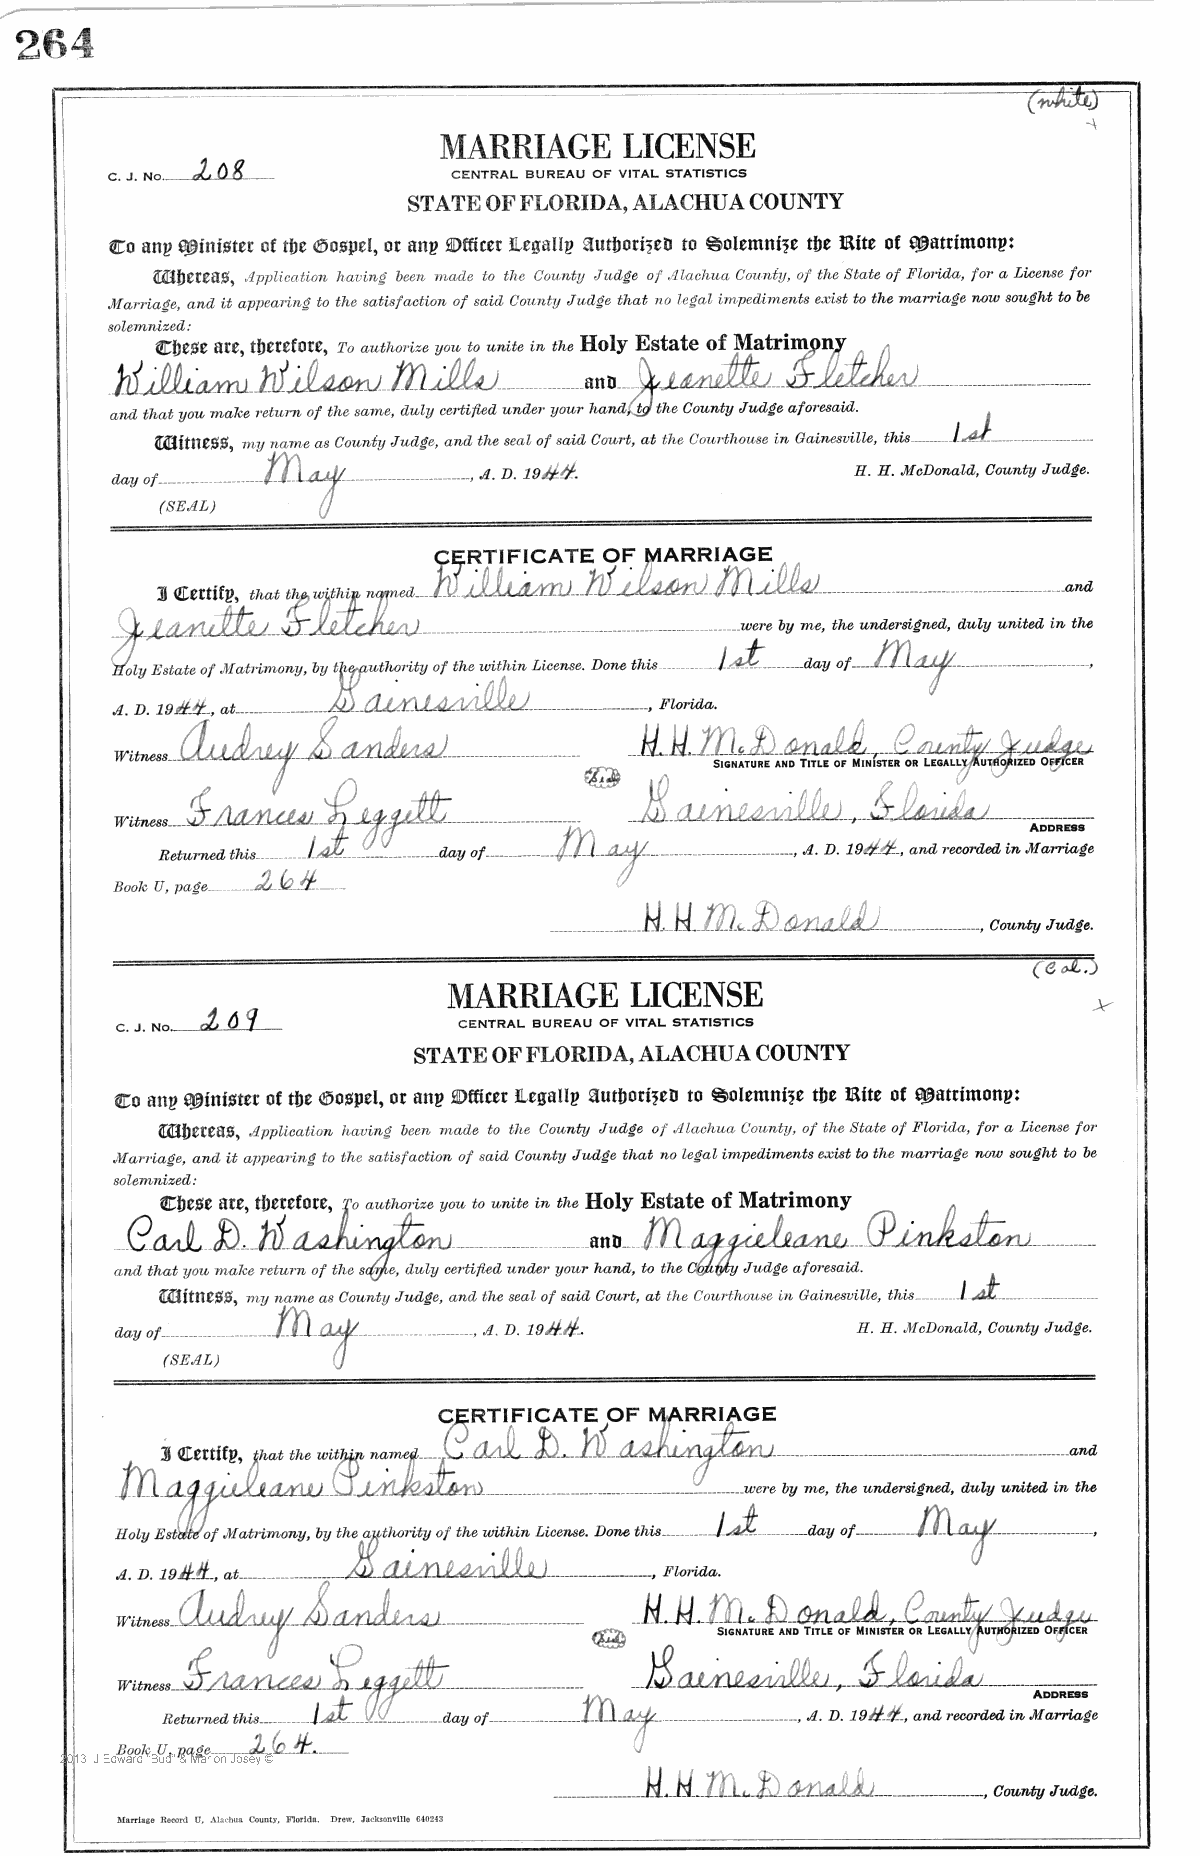 264
(white)
MARRIAGE LICENSE
C. J. No. 208
CENTRAL BUREAU OF VITAL STATISTICS
STATE OF FLORIDA, ALACHUA COUNTY
To any Minister of the Gospel, or any Officer Legally Authorized to Solemnize the Rite of Matrimony:
Whereas, Application having been made to the County Judge of Alachua County, of the State of Florida, for a License for
Marriage, and it appearing to the satisfaction of said County Judge that no legal impediments exist to the marriage now sought to be
solemnized:
These are, therefore, To authorize you to unite in the Holy Estate of Matrimony
William Wilson Mills and Jeanette Fletcher
and that you make return of the same, duly certified under your hand, to the County Judge aforesaid.
Witness, my name as County Judge, and the seal of said Court, at the Courthouse in Gainesville, this 1st
day of May, A. D. 1944. H. H. McDonald, County Judge.
(SEAL)
CERTIFICATE OF MARRIAGE
I Certify, that the within named William Wilson Mills and
Jeanette Fletcher were by me, the undersigned, duly united in the
Holy Estate of Matrimony, by the authority of the within License. Done this 1st day of May,
A. D. 1944, at Gainesville, Florida.
Witness Audrey Sanders H. H. McDonald, County Judge
SIGNATURE AND TITLE OF MINISTER OR LEGALLY AUTHORIZED OFFICER
Seal
Witness Frances Leggett Gainesville, Florida
ADDRESS
Returned this 1st day of May, A. D. 1944, and recorded in Marriage
Book U, page 264
H. H. McDonald, County Judge.
(Col.)
MARRIAGE LICENSE
C. J. No. 209
CENTRAL BUREAU OF VITAL STATISTICS
STATE OF FLORIDA, ALACHUA COUNTY
To any Minister of the Gospel, or any Officer Legally Authorized to Solemnize the Rite of Matrimony:
Whereas, Application having been made to the County Judge of Alachua County, of the State of Florida, for a License for
Marriage, and it appearing to the satisfaction of said County Judge that no legal impediments exist to the marriage now sought to be
solemnized:
These are, therefore, To authorize you to unite in the Holy Estate of Matrimony
Carl D. Washington and Maggieleane Pinkston
and that you make return of the same, duly certified under your hand, to the County Judge aforesaid.
Witness, my name as County Judge, and the seal of said Court, at the Courthouse in Gainesville, this 1st
day of May, A. D. 1944. H. H. McDonald, County Judge.
(SEAL)
CERTIFICATE OF MARRIAGE
I Certify, that the within named Carl D. Washington and
Maggieleane Pinkston were by me, the undersigned, duly united in the
Holy Estate of Matrimony, by the authority of the within License. Done this 1st day of May,
A. D. 1944, at Gainesville, Florida.
Witness Audrey Sanders H. H. McDonald, County Judge
SIGNATURE AND TITLE OF MINISTER OR LEGALLY AUTHORIZED OFFICER
Seal
Witness Frances Leggett Gainesville, Florida
ADDRESS
Returned this 1st day of May, A. D. 1944, and recorded in Marriage
Book U, page 264.
2013 J Edward "Bud" & Marion Josey ©
H. H. McDonald, County Judge.
Marriage Record U, Alachua County, Florida. Drew, Jacksonville 640243